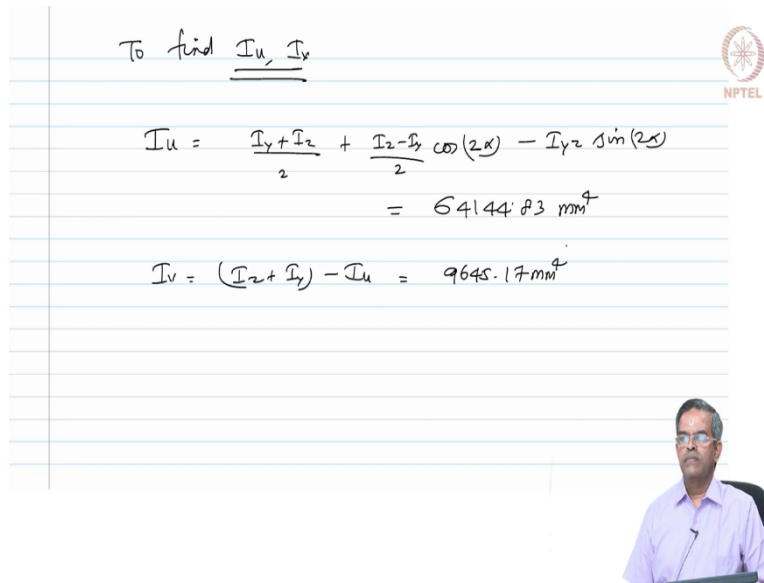 To find Iu, Iv
NPTEL
Iu = Iy + Iz / 2 + Iz - Iy / 2 cos (2α) - Iyz sin (2α)
= 64144.83 mm⁴
Iv = (Iz + Iy) - Iu = 9645.17 mm⁴